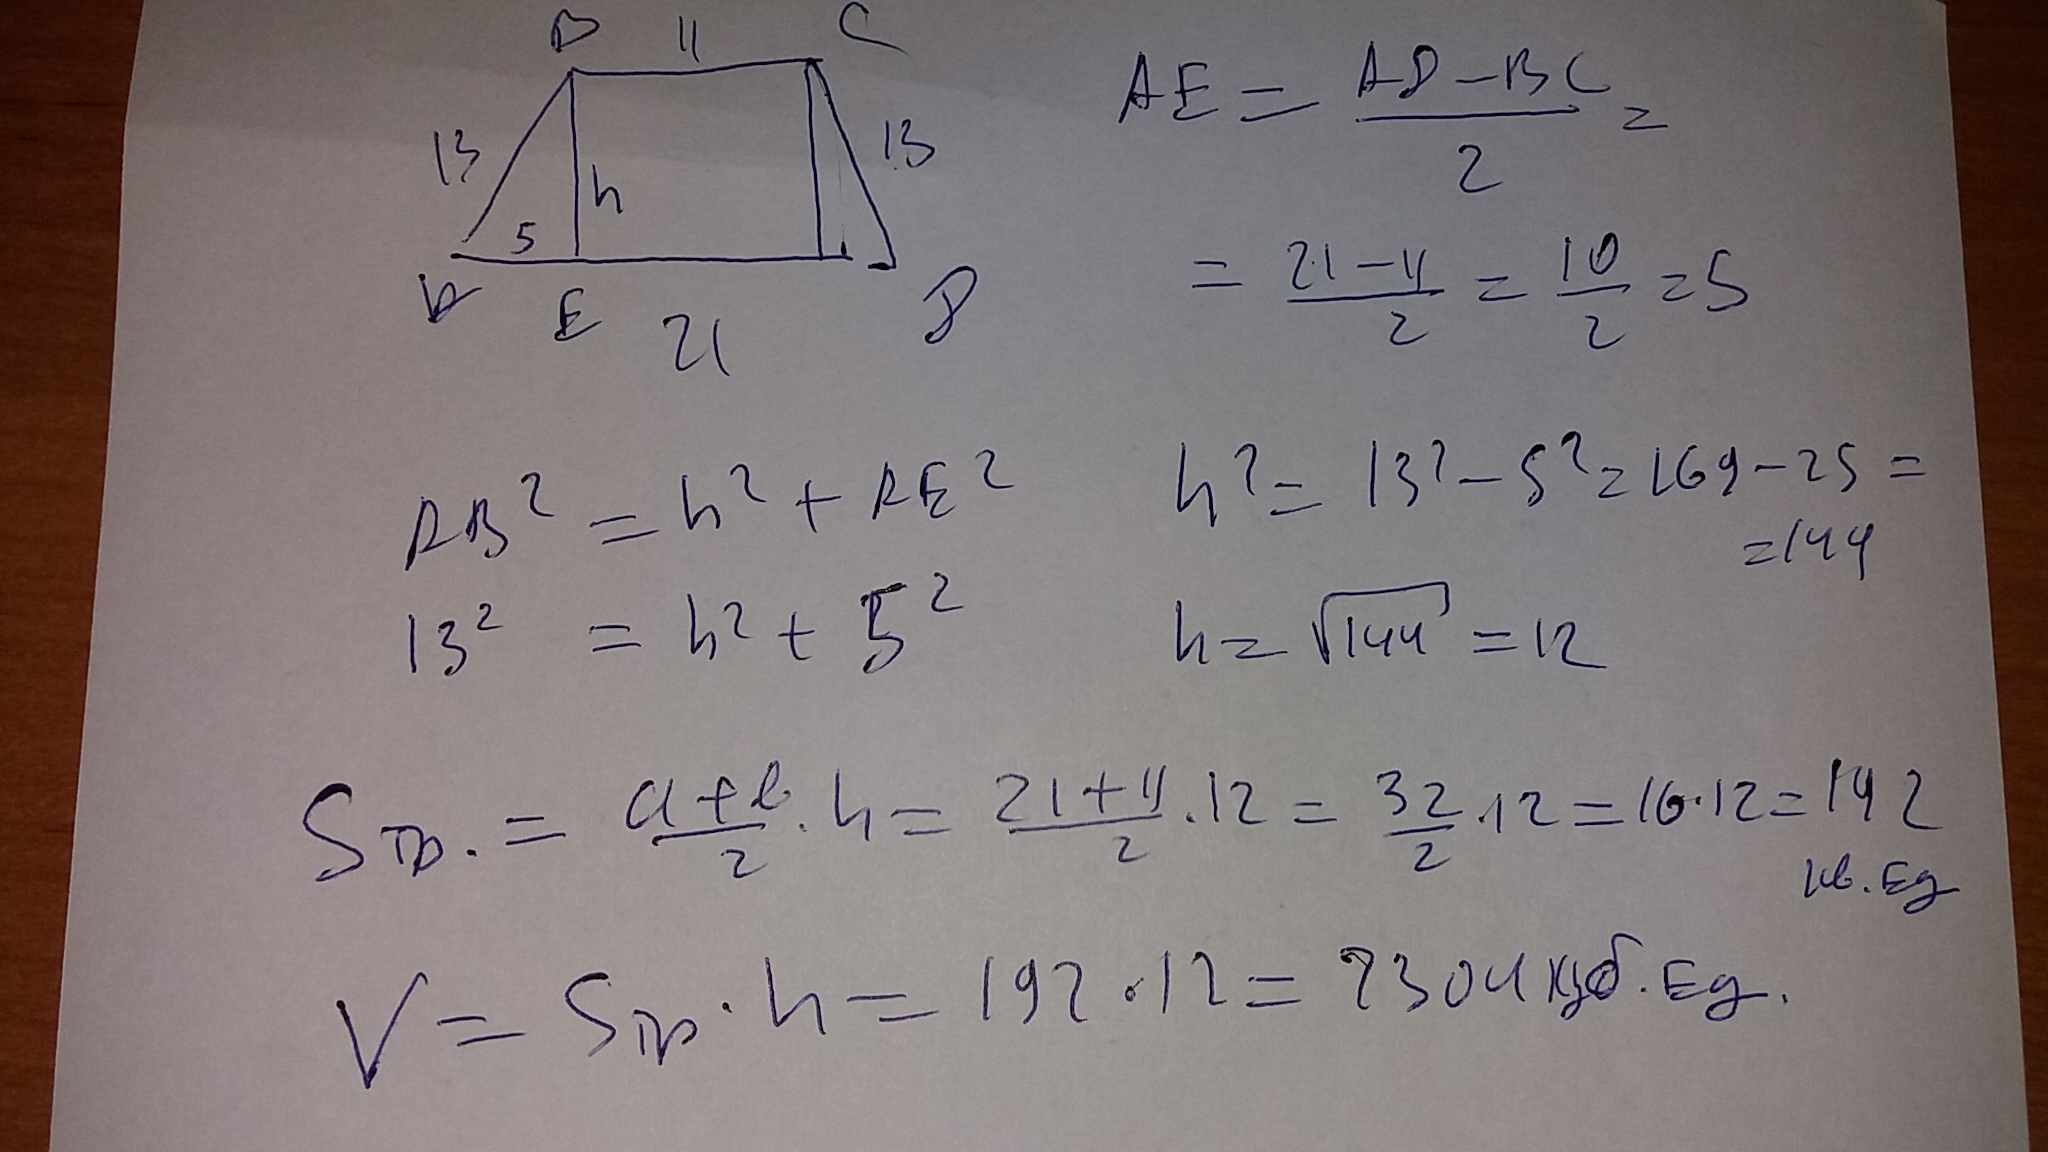 B 11 C
13 h 13
5
A E 21 D
AE = AD - BC / 2 =
= 21 - 11 / 2 = 10 / 2 = 5
AB² = h² + AE²
13² = h² + 5²
h² = 13² - 5² = 169 - 25 =
= 144
h = √144 = 12
Sтр. = a + b / 2 · h = 21 + 11 / 2 · 12 = 32 / 2 · 12 = 16 · 12 = 192
кв. Ед
V = Sтр · h = 192 · 12 = 2304 куб. Ед.